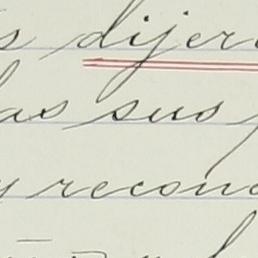 s dijer
las sus
y recono